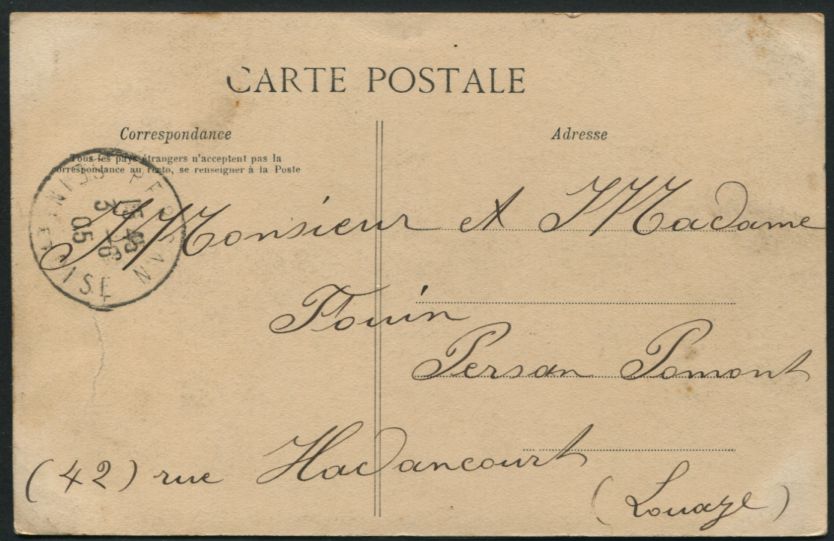 CARTE POSTALE
Correspondance
Adresse
Tous les pays étrangers n'acceptent pas la
correspondance au recto, se renseigner à la Poste
PERSAN
SEINE-ET-OISE
3 -6
05
Monsieur et Madame
Fouin
Persan Pomont
(42) rue Hadancourt